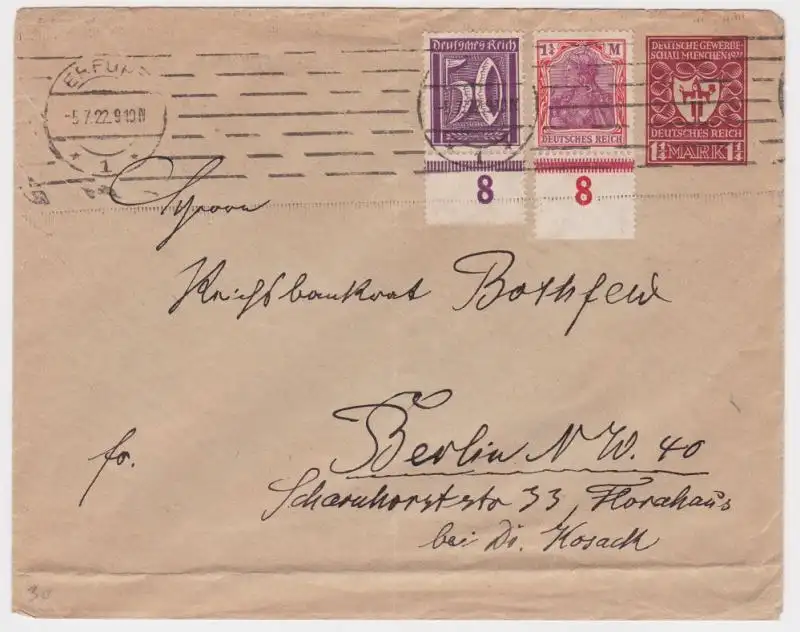 ERFURT
-5.7.22.9-10N
* 1 *
Deutsches Reich
50
1¼ M
DEUTSCHES REICH
DEUTSCHE GEWERBE-
SCHAU MÜNCHEN 1922
DEUTSCHES REICH
1¼ MARK 1¼
8
8
Herrn
Reichsbankrat Bothfeld
fr.
Berlin N.W. 40
Scharnhorststr 33, Florahaus
bei Dr. Kosack
30